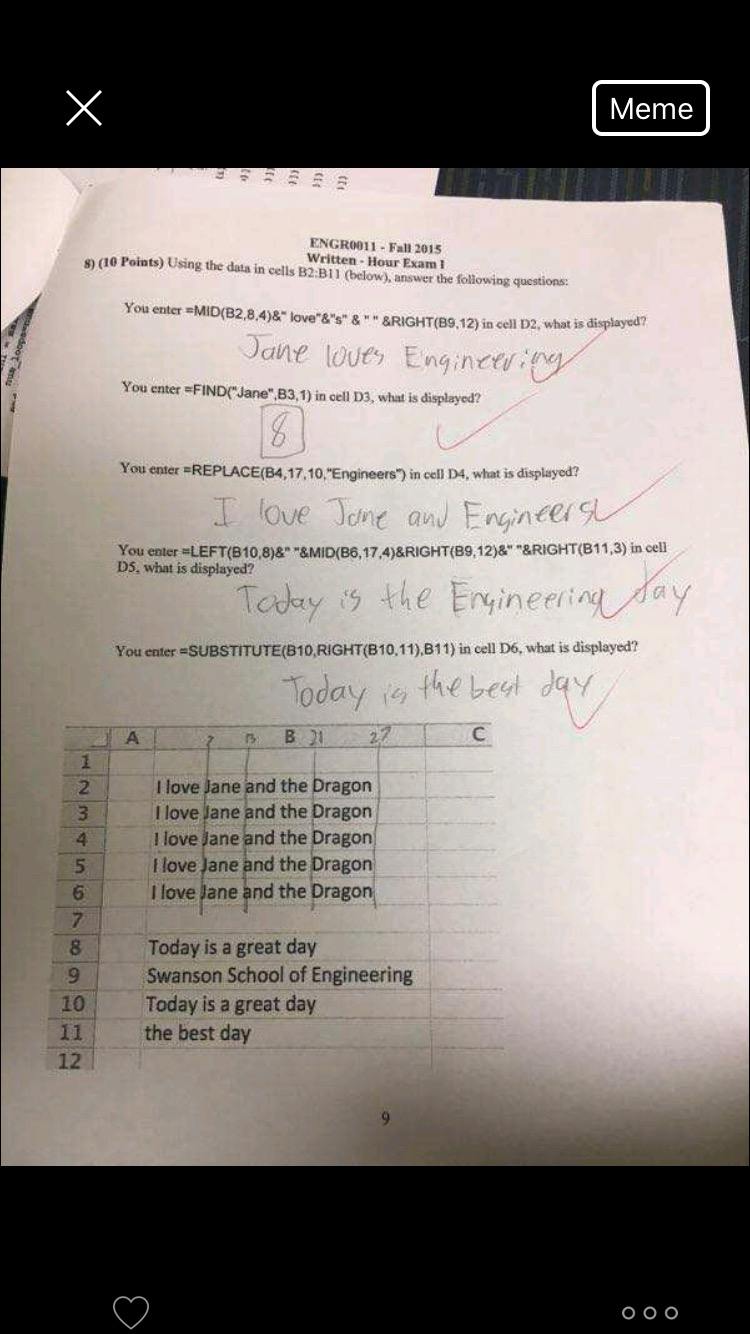 Meme
ENGR0011 - Fall 2015
Written - Hour Exam I
8) (10 Points) Using the data in cells B2:B11 (below), answer the following questions:
You enter =MID(B2,8,4)&" love"&"s" & " " &RIGHT(B9,12) in cell D2, what is displayed?
Jane loves Engineering
You enter =FIND("Jane",B3,1) in cell D3, what is displayed?
8
You enter =REPLACE(B4,17,10,"Engineers") in cell D4, what is displayed?
I love Jane and Engineers
You enter =LEFT(B10,8)&" "&MID(B6,17,4)&RIGHT(B9,12)&" "&RIGHT(B11,3) in cell
D5, what is displayed?
Today is the Engineering day
You enter =SUBSTITUTE(B10,RIGHT(B10,11),B11) in cell D6, what is displayed?
Today is the best day
A 7 13 B 21 27 C
1
2 I love Jane and the Dragon
3 I love Jane and the Dragon
4 I love Jane and the Dragon
5 I love Jane and the Dragon
6 I love Jane and the Dragon
7
8 Today is a great day
9 Swanson School of Engineering
10 Today is a great day
11 the best day
12
9